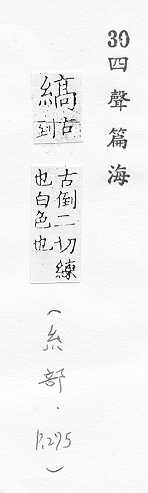 30四聲篇海
縞
古
到
古倒二切練
也白色也
（糸部．P.275）